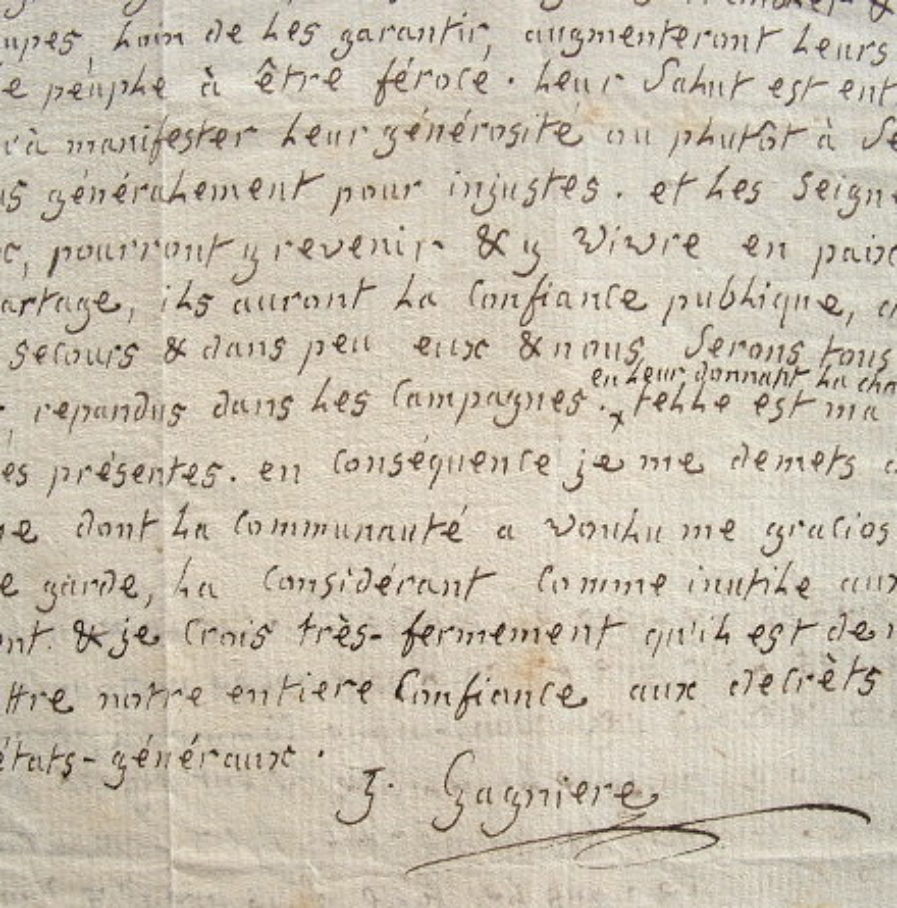 upes, loin de les garantir, augmenteront leurs
e peuple à être féroce. leur salut est ent
à manifester leur générosité ou plutôt à se
us généralement pour injustes. et les seigne
c, pourront y revenir & y vivre en paix
artage, ils auront la confiance publique, 
secours & dans peu eux & nous serons tous
en leur donnant la cha
, repandus dans les campagnes. x telle est ma
es présentes. en conséquence je me demets
ne dont la communauté a voulu me gracios
e garde, la considérant comme inutile aux
nt. & je crois très-fermement qu'il est de n
ttre notre entiere confiance aux decrèts
états-généraux.
J. Gagniere